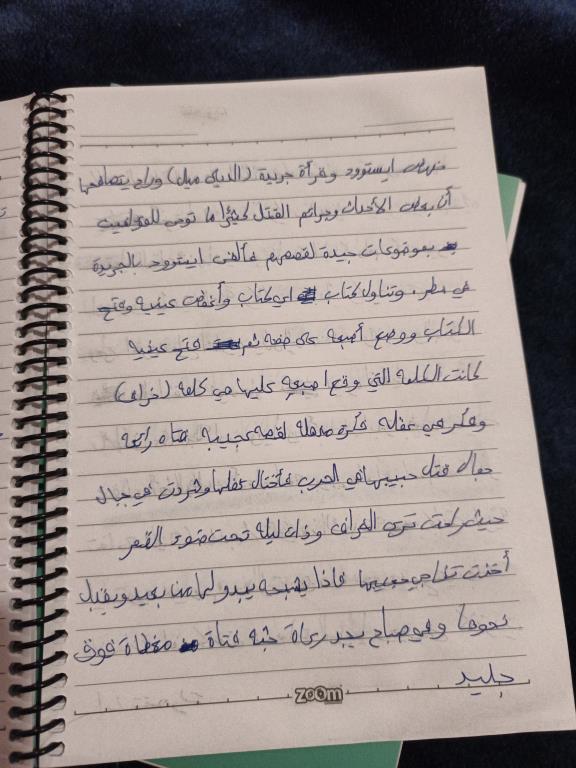 فنهض ايستوود وقرأة جريدة (الديلي ميل) وراح يتصافحها
أن بعض الأحداث وجرائم القتل كثيرًا ما توحى للمؤلفين
بموضوعات جيدة لقصصهم فألقى ايستوود بالجريدة
في مطر، وتناول كتاب اي كتاب وأغمض عينيه وفتح
الكتاب ووضع أصبعه على صفحة ثم فتح عينيه
كانت الكلمة التي وقع اصبعه عليها هي كلمة (خراف)
وفكر في عقله فكرة مذهلة لقصة عجيبة فتاه رائعة
جمال قتل حبيبها في الحرب فأختال عقلها وشردت في جبال
حيث راحت ترعى الخراف وذات ليلة تحت ضوء القمر
أخذت تناجي حبيبها فاذا بشبحه يبدو لها من بعيد ويقبل
نحوها وفي صباح يجد رعاة جثة فتاة مغطاة فوق
جليد
zoom